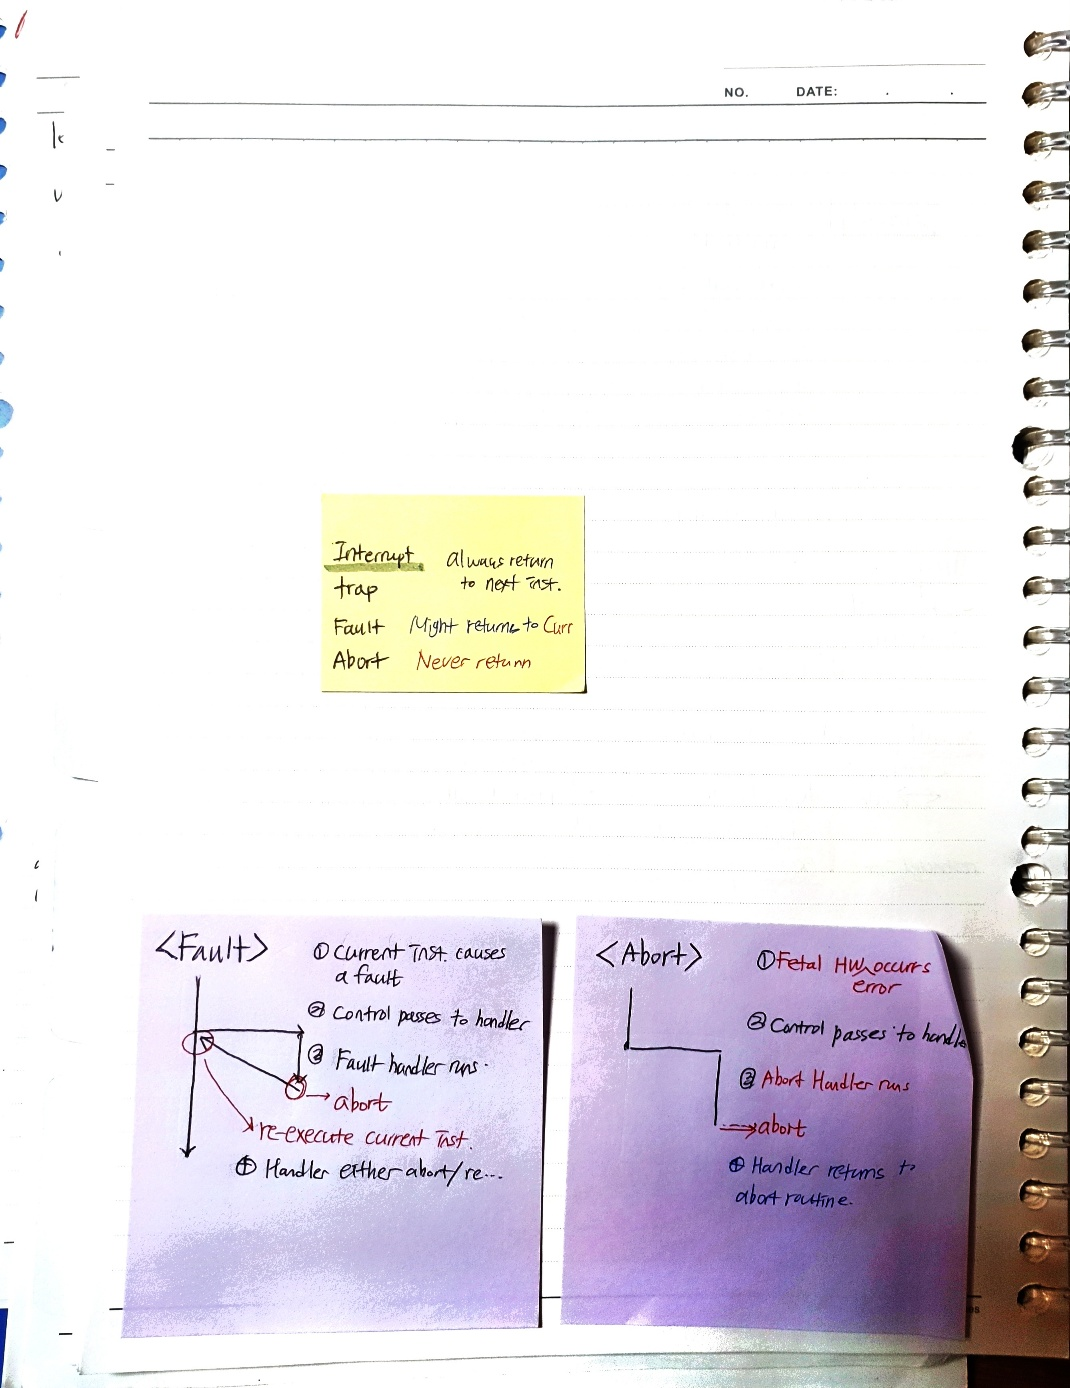 NO. DATE: . .
Interrupt always return
trap to next inst.
Fault Might returns to Curr
Abort Never return
<Fault>
① Current inst. causes
a fault
② Control passes to handler
③ Fault handler runs.
→ abort
re-execute current inst.
④ Handler either abort/re...
<Abort>
① Fetal HW occurs
error
② Control passes to handle
③ Abort Handler runs
→ abort
④ Handler returns to
abort routine.